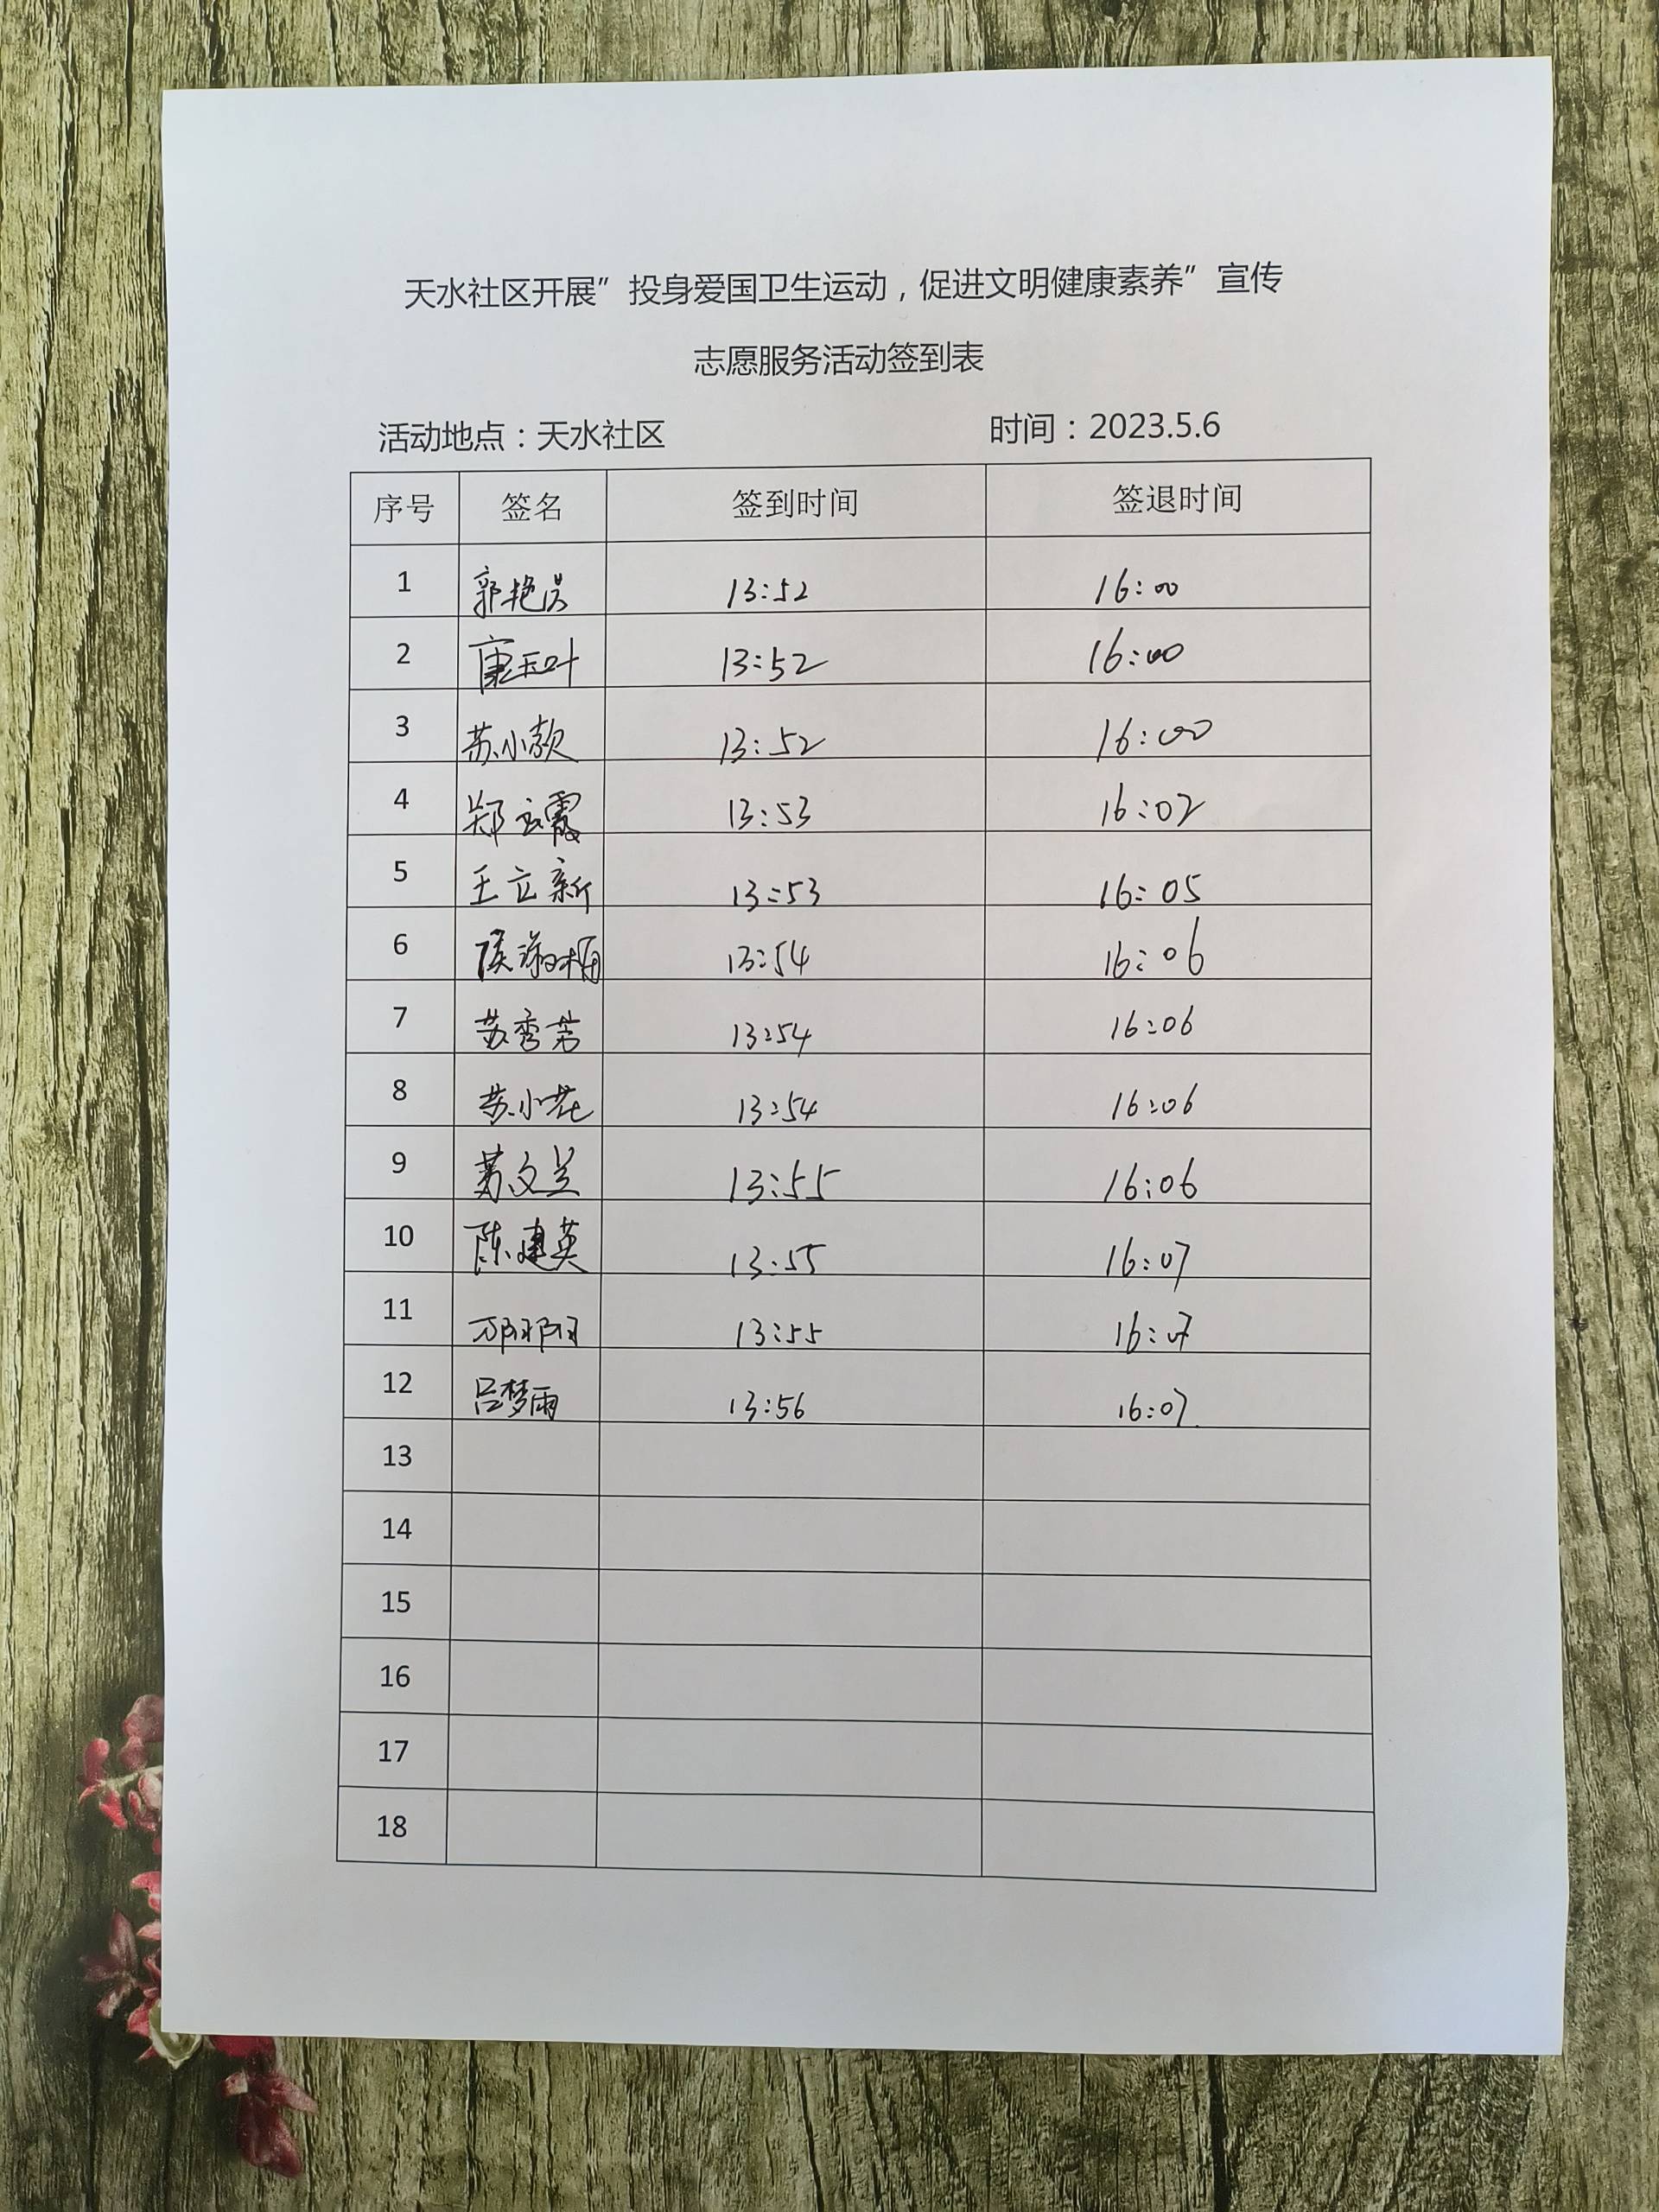 天水社区开展”投身爱国卫生运动，促进文明健康素养”宣传
志愿服务活动签到表
活动地点：天水社区 时间：2023.5.6
序号 签名 签到时间 签退时间
1 13:52 16:00
2 康玉叶 13:52 16:00
3 苏小款 13:52 16:00
4 郑玉霞 13:53 16:02
5 王立新 13:53 16:05
6 13:54 16:06
7 苏秀芳 13:54 16:06
8 苏小花 13:54 16:06
9 苏文兰 13:55 16:06
10 陈建英 13:55 16:07
11 13:55 16:07
12 吕梦雨 13:56 16:07
13
14
15
16
17
18